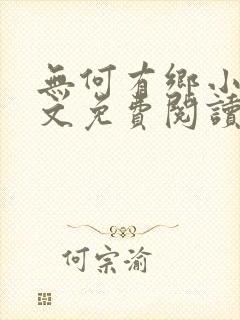 無何有鄉小
文免費閱讀
何宗渝